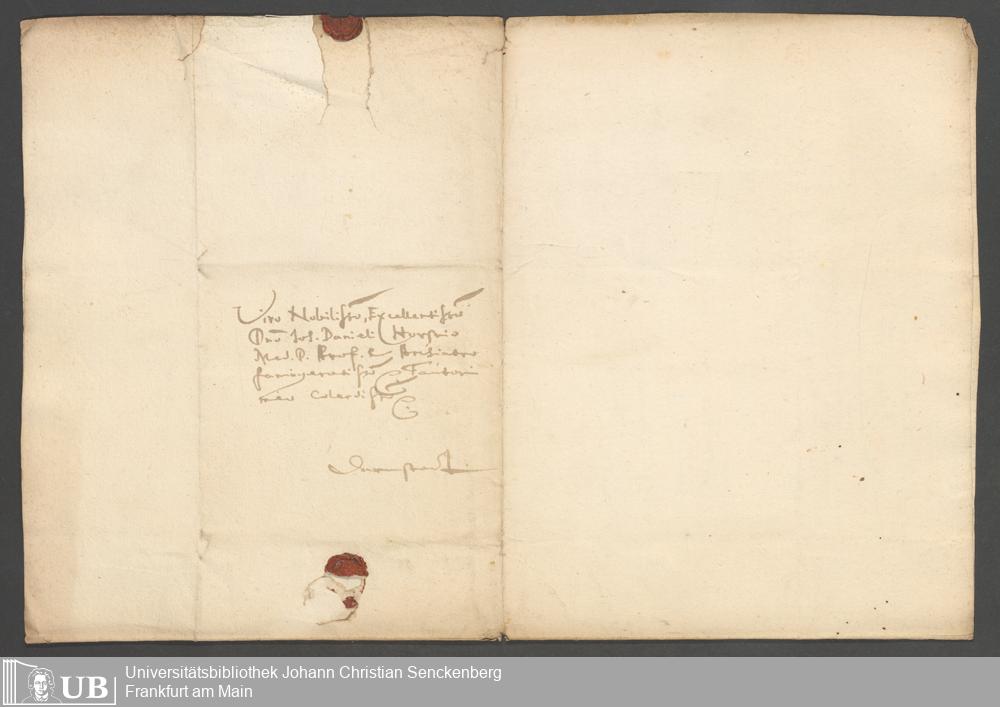 Viro Nobilissō, Excellentissō
Dnō Joh. Danieli Horstio
Med. D. Prof. & Archiatro
famigeratissō & Fautori
meo Colendissō
Darmstadt
Universitätsbibliothek Johann Christian Senckenberg
Frankfurt am Main
UB